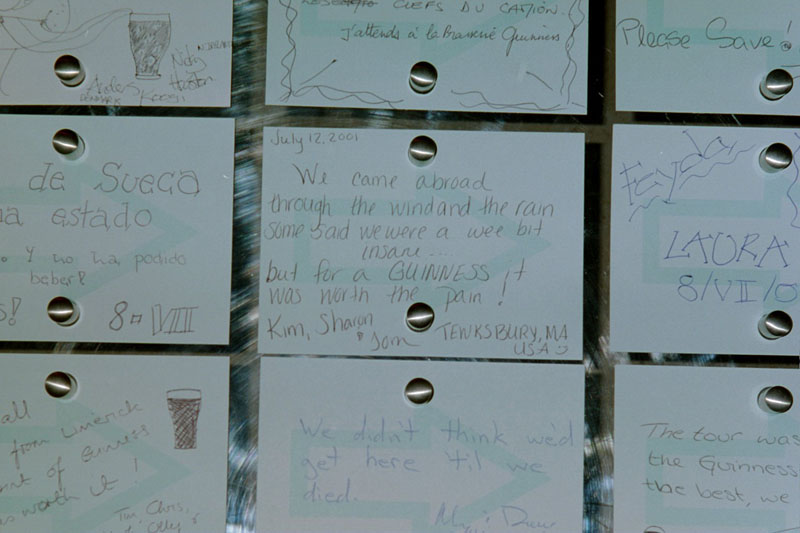 Nicky
CHEFS DU CAMION.
J'attends à la Brasserie Guinness
Please Save!
de Sueca
ha estado
o y no ha podido
beber?
8 VIII
July 12, 2001
We came abroad
through the wind and the rain
some said we were a wee bit
insane....
but for a GUINNESS it
was worth the pain!
Kim, Sharon
& Tom TEWKSBURY, MA
USA
LAURA
8/VII/0
all
from Limerick
of Guinness
worth it!
Tim, Chris,
Olly &
We didn't think we'd
get here 'til we
died.
The tour was
the Guinness
the best, we